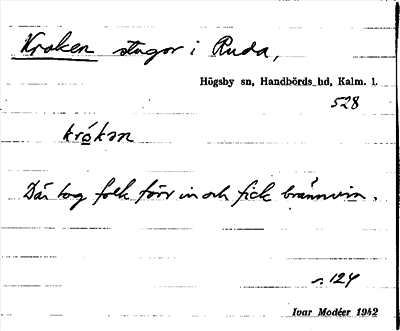 Kroken stugor i Ruda,
Högsby sn, Handbörds hd, Kalm. l.
528
krókən
Där tog folk förr in och fick brännvin.
s. 124
Ivar Modéer 1942